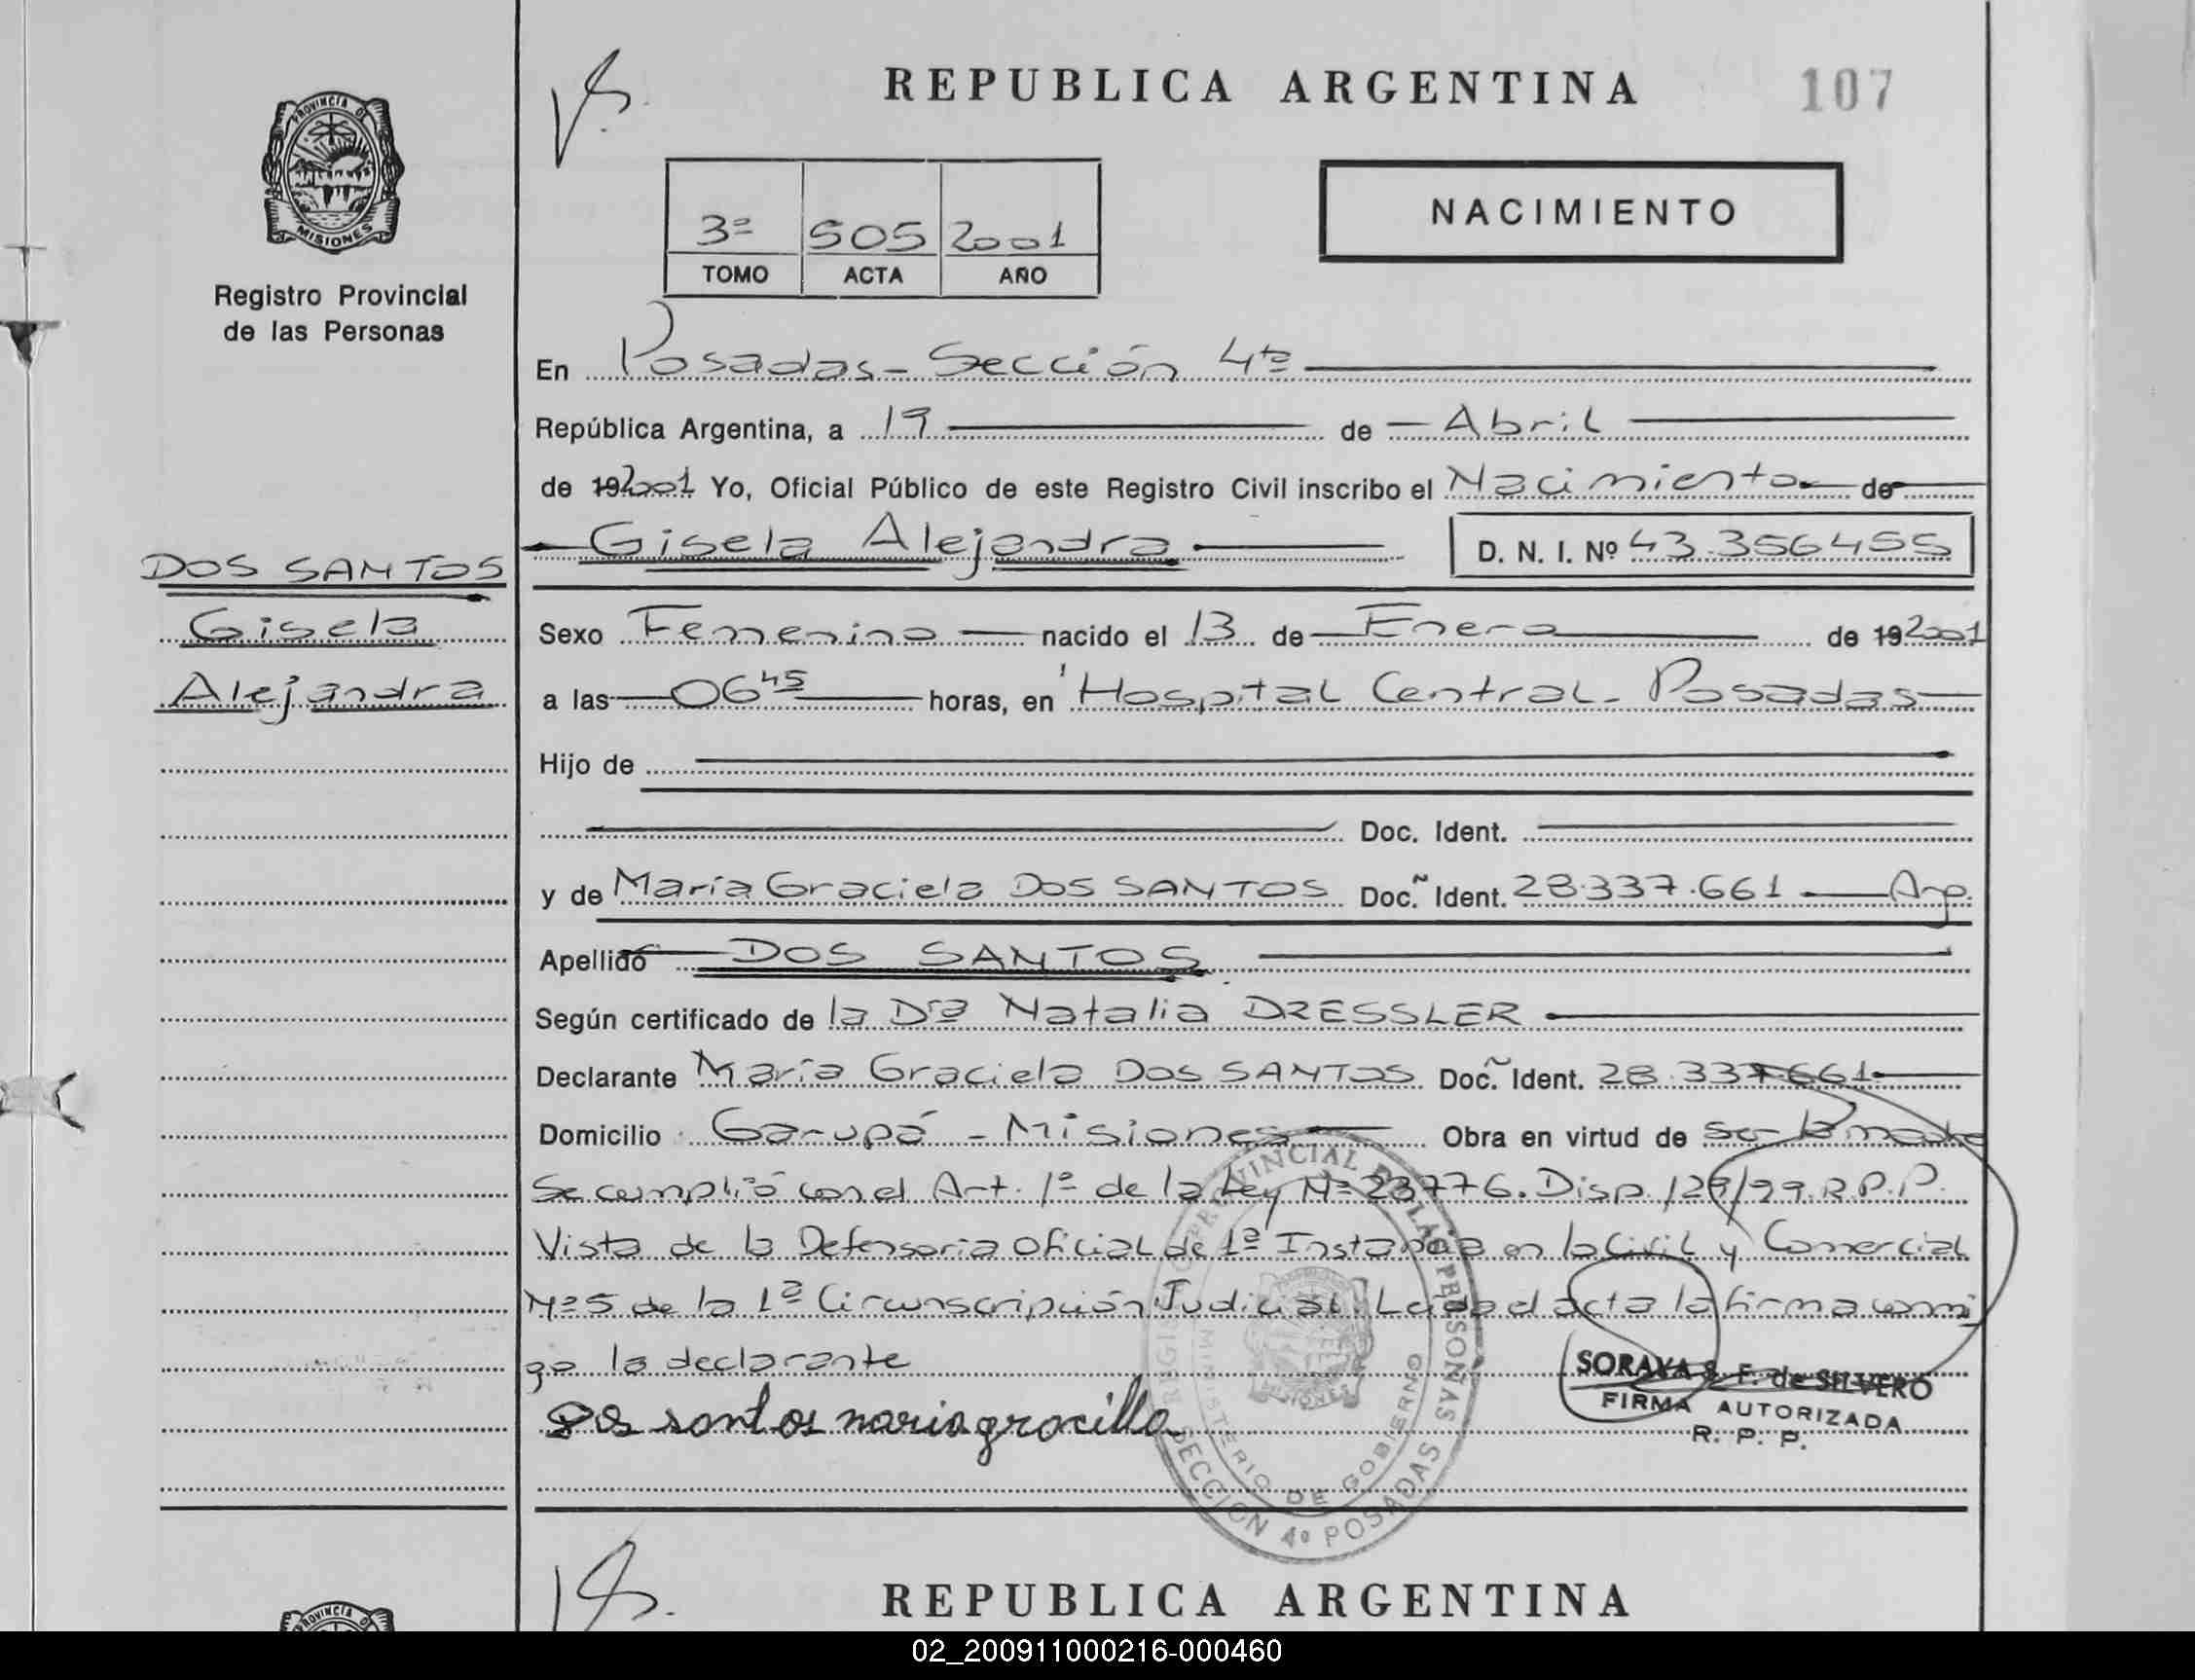 REPUBLICA ARGENTINA
107
PROVINCIA DE
MISIONES
Registro Provincial
de las Personas
3º 505 2001
TOMO ACTA AÑO
NACIMIENTO
En Posadas - Sección 4ta
República Argentina, a 19 de Abril
de 192001 Yo, Oficial Público de este Registro Civil inscribo el Nacimiento de
Gisela Alejandra D. N. I. Nº 43.356455
DOS SANTOS
Gisela
Alejandra
Sexo Femenino nacido el 13 de Enero de 192001
a las 06 45 horas, en Hospital Central - Posadas
Hijo de
Doc. Ident.
y de María Graciela DOS SANTOS Doc. Ident. 28.337.661 Arg.
Apellido DOS SANTOS
Según certificado de la Dra Natalia DRESSLER
Declarante María Graciela DOS SANTOS Doc. Ident. 28.337.661
Domicilio Garupá - Misiones Obra en virtud de ser la madre
Se cumplió con el Art. 1º de la Ley Nº 23776. Disp. /99 R.P.P.
Vista de la Defensoría Oficial de 1ª Instancia en lo Civil y Comercial
Nº 5 de la 1ª Circunscripción Judicial. Leída el acta la firma conmi
go la declarante
Dos santos maria gracilla
SORAYA S. F. de SILVERO
FIRMA AUTORIZADA
R. P. P.
REGISTRO PROVINCIAL DE LAS PERSONAS
MINISTERIO DE GOBIERNO
SECCION 4º POSADAS
REPUBLICA ARGENTINA
PROVINCIA D
02_200911000216-000460